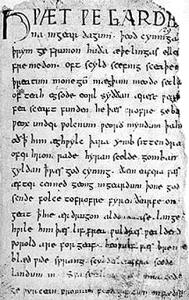 HǷÆT ǷE GARDE
na ingear dagum . þeod cyninga
þrym ge frunon huða æþelingas elle
fre medon . oft scyld scefing sceaþe
þreatum monegū mægþum meodo setl
of teah egsode eorl syððan ærest ƿear
fea sceaft funden he þæs frofre geba
ƿeox under ƿolcnum ƿeorð myndum þah
oð þ him æghƿylc þara ymb sittendra
ofer hron rade hyran scolde gomban
gyldan þ ƿæs god cyning . ðæm eafera ƿæs
æfter cenned geong ingeardum þone god
sende folce tofrofre fyren ðearfe on
geat þ hie ær drugon aldor ase . lange
hƿile him þæs lif frea ƿuldres ƿealdend
ƿorold are for geaf . beoƿulf ƿæs breme
blæd ƿide sprang scyldes eafera scede
landum in . Sƿa sceal
ge ƿyrcean fromum feoh giftum